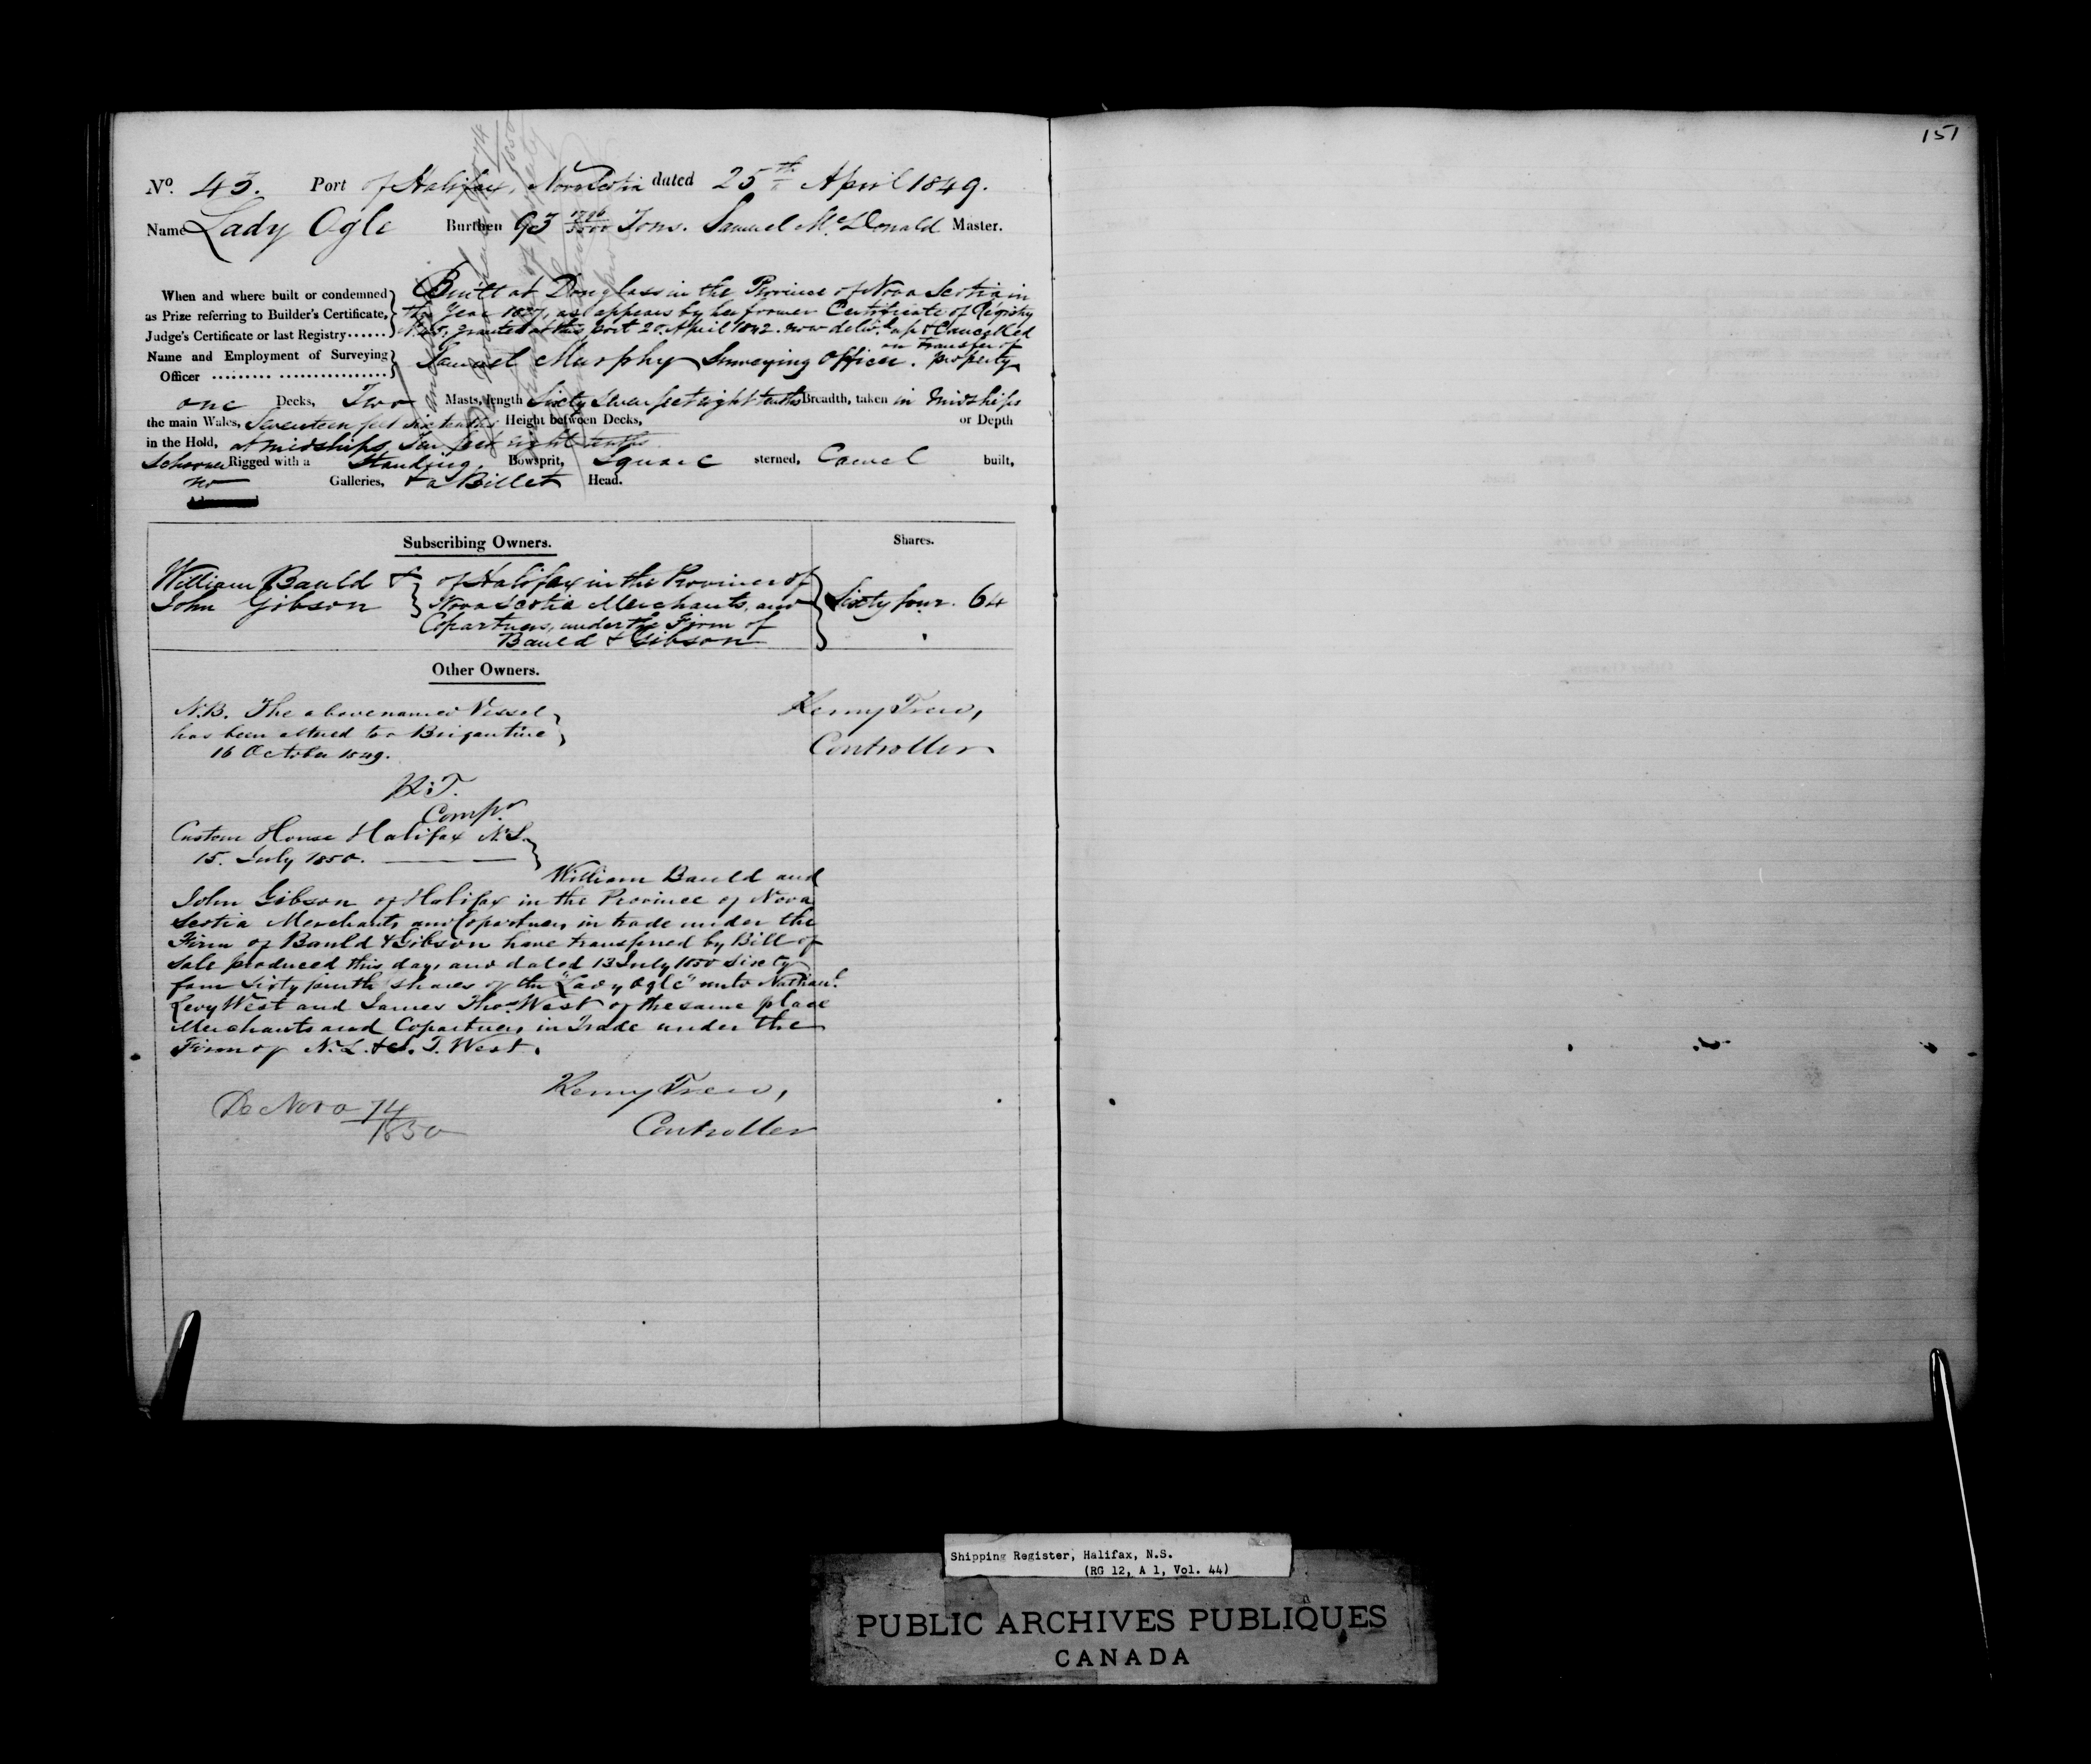 151
No. 43. Port of Halifax, Nova Scotia dated 25th April 1849.
Name Lady Ogle Burthen 93 1796/3500 Tons. Samuel McDonald Master.
When and where built or condemned as Prize referring to Builder's Certificate, Judge's Certificate or last Registry......
Built at Douglass in the Province of Nova Scotia in
the Year 1837, as appears by her former Certificate of Registry
granted at this Port 20 April 1842. now delivd. up & Cancelled
on transfer of
property
Name and Employment of Surveying Officer
Samuel Murphy Surveying Officer.
one Decks, Two Masts, length Sixty seven feet eight tenths Breadth, taken in midships
the main Wales, Seventeen feet six tenths Height between Decks, or Depth
in the Hold, at midships Ten feet eight tenths
Schooner Rigged with a Standing Bowsprit, Square sterned, Carvel built,
no Galleries, & a Billet Head.
Subscribing Owners. Shares.
William Bauld & of Halifax in the Province of
John Gibson Nova Scotia Merchants, and Sixty four. 64
Copartners, under the Firm of
Bauld & Gibson
Other Owners.
N.B. The above named Vessel
has been altered to a Brigantine
16 October 1849.
Kenny Trew,
Controller
K: T.
Compr
Custom House Halifax N.S.
15. July 1850.
William Bauld and
John Gibson of Halifax in the Province of Nova
Scotia Merchants and Copartners in trade under the
Firm of Bauld & Gibson have transferred by Bill of
Sale produced this day, and dated 13 July 1850 Sixty
four Sixty fourth shares of the "Lady Ogle" unto Nathanl.
Levy West and James Thos. West of the same place
Merchants and Copartners in Trade under the
Firm of N. L. & J. T. West.
Kenny Trew,
Controller
De Novo 74/1850
Shipping Register, Halifax, N.S.
(RG 12, A 1, Vol. 44)
PUBLIC ARCHIVES PUBLIQUES
CANADA